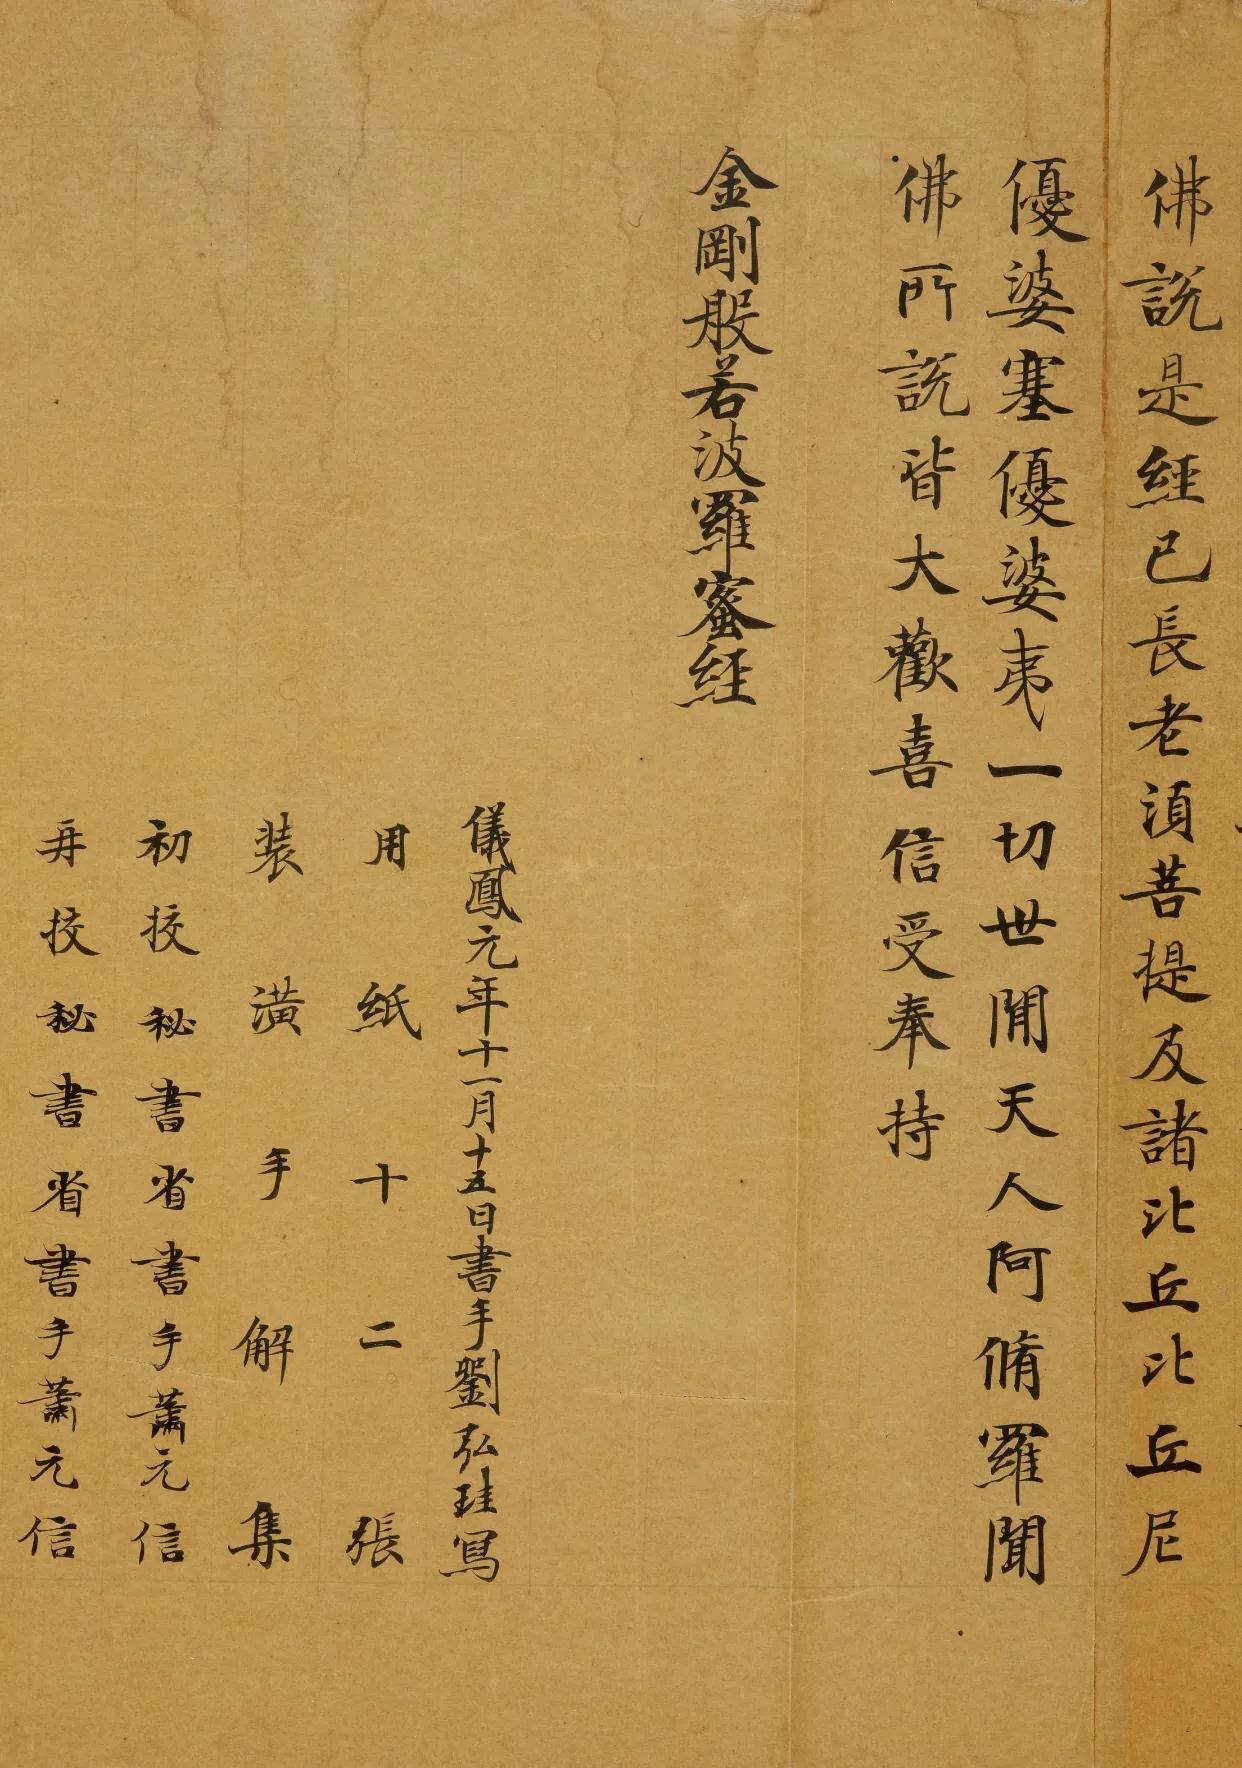 佛説是經已長老湏菩提及諸比丘比丘尼
優婆塞優婆夷一切世間天人阿脩羅聞
佛所説皆大歡喜信受奉持
金剛般若波羅蜜經
儀鳳元年十一月十五日書手劉弘珪寫
用紙十二張
装潢手解集
初挍秘書省書手蕭元信
再挍秘書省書手蕭元信